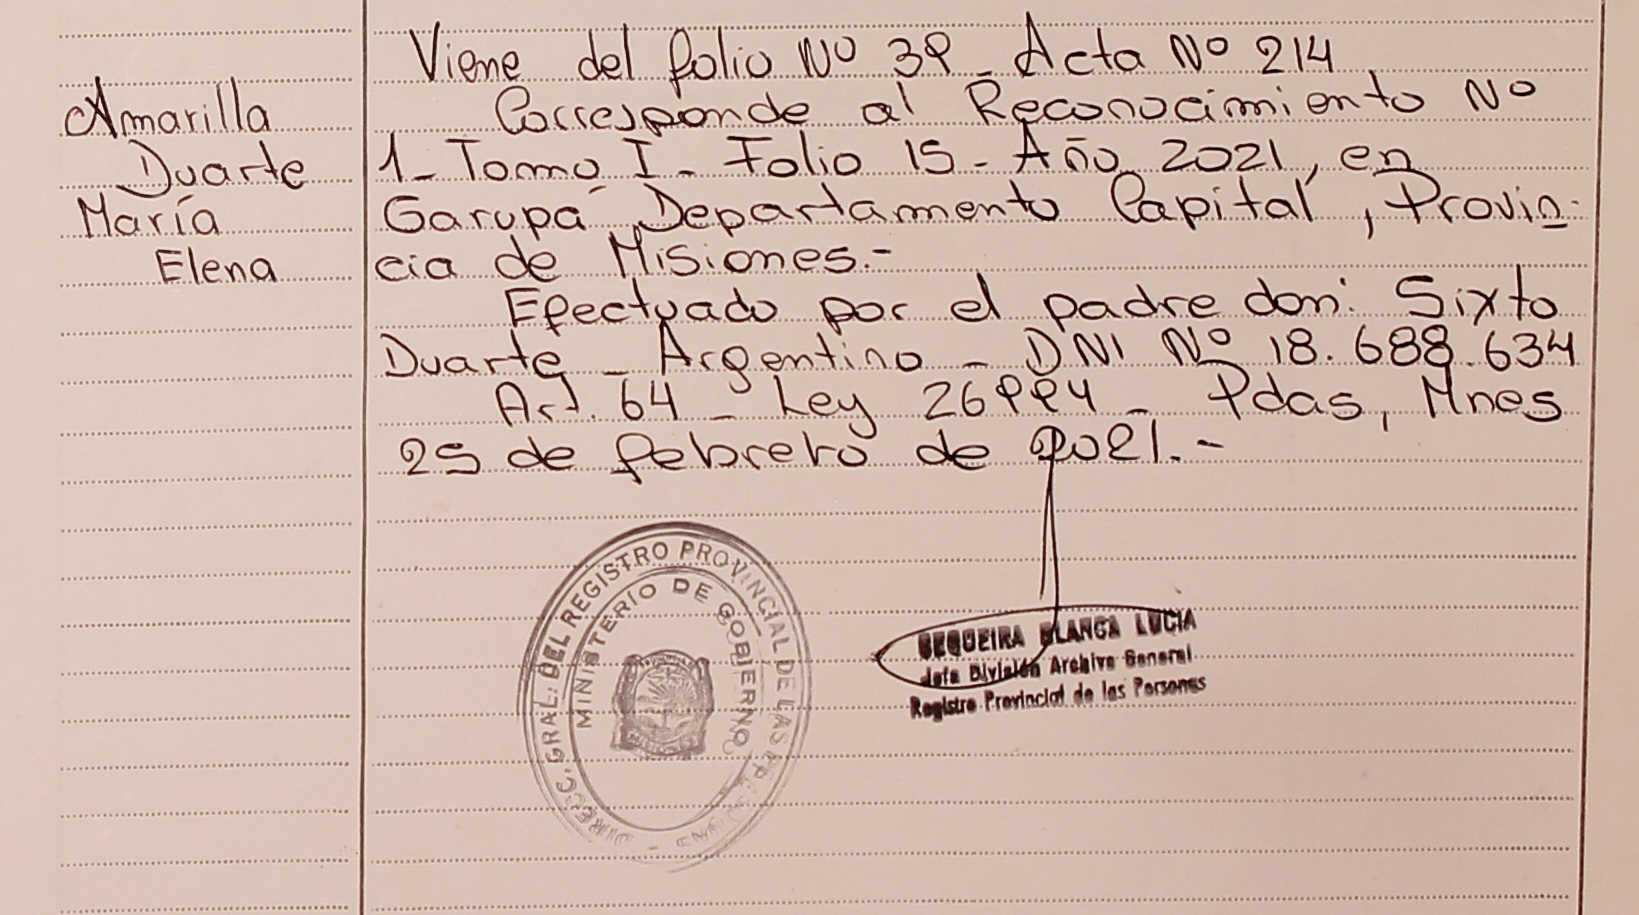 Viene del folio Nº 39 - Acta Nº 214
Amarilla
Duarte
María
Elena
Corresponde al Reconocimiento Nº
1 - Tomo I - Folio 15 - Año 2021, en
Garupá Departamento Capital, Provin-
cia de Misiones.-
Efectuado por el padre don: Sixto
Duarte - Argentino - DNI Nº 18.688.634
Art. 64 - Ley 26994 - Pdas, Mnes
25 de febrero de 2021.-
DIRECC. GRAL. DEL REGISTRO PROVINCIAL DE LAS PERSONAS -
MINISTERIO DE GOBIERNO
MISIONES
SEQUEIRA BLANCA LUCIA
Jefa División Archivo General
Registro Provincial de las Personas